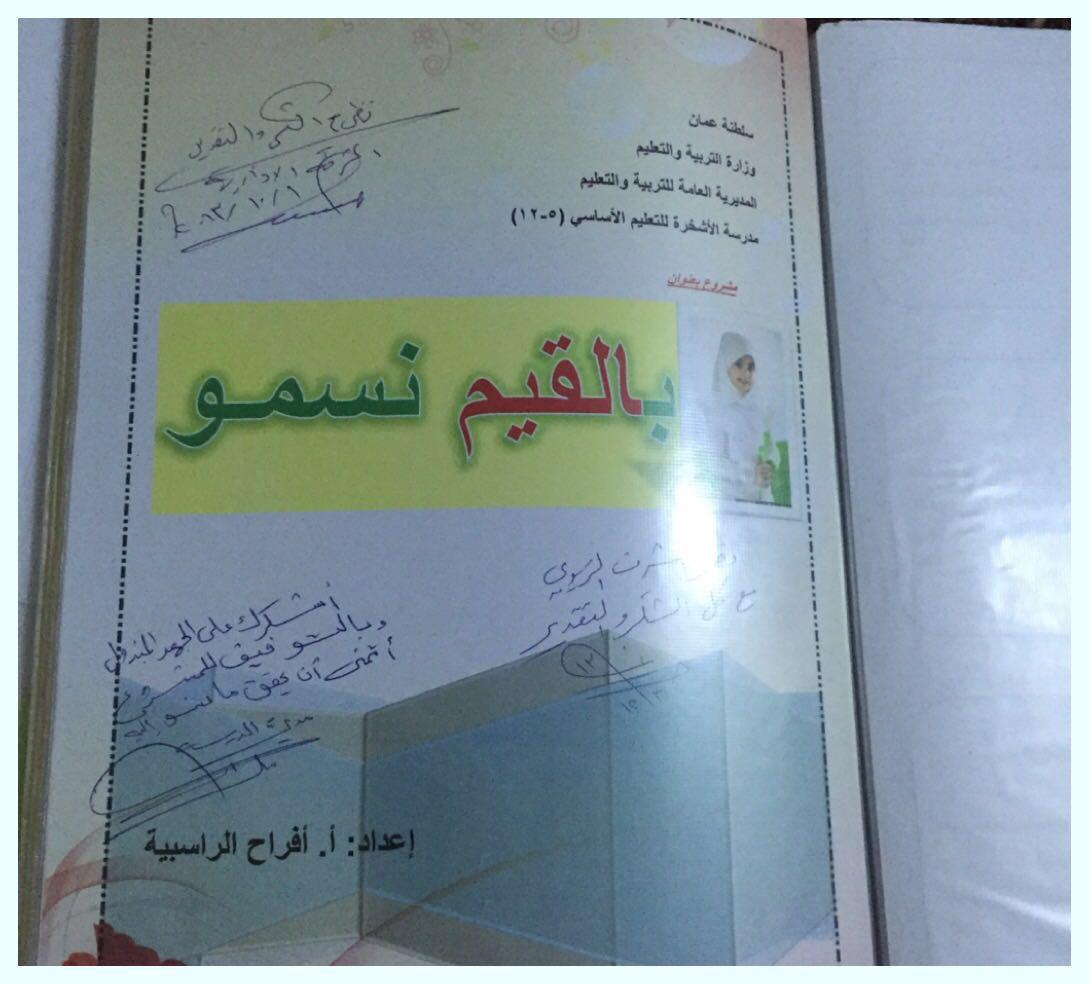 سلطنة عمان
وزارة التربية والتعليم
المديرية العامة للتربية والتعليم
مدرسة الأشخرة للتعليم الأساسي (٥-١٢)
نظر مع الشكر والتقدير
مشروع بعنوان
بالقيم نسمو
مع كل الشكر والتقدير
أشكرك على الجهد المبذول
وبالتوفيق للمشروع
أتمنى أن يحقق ما نسمو إليه
مديرة المدرسة
إعداد: أ. أفراح الراسبية